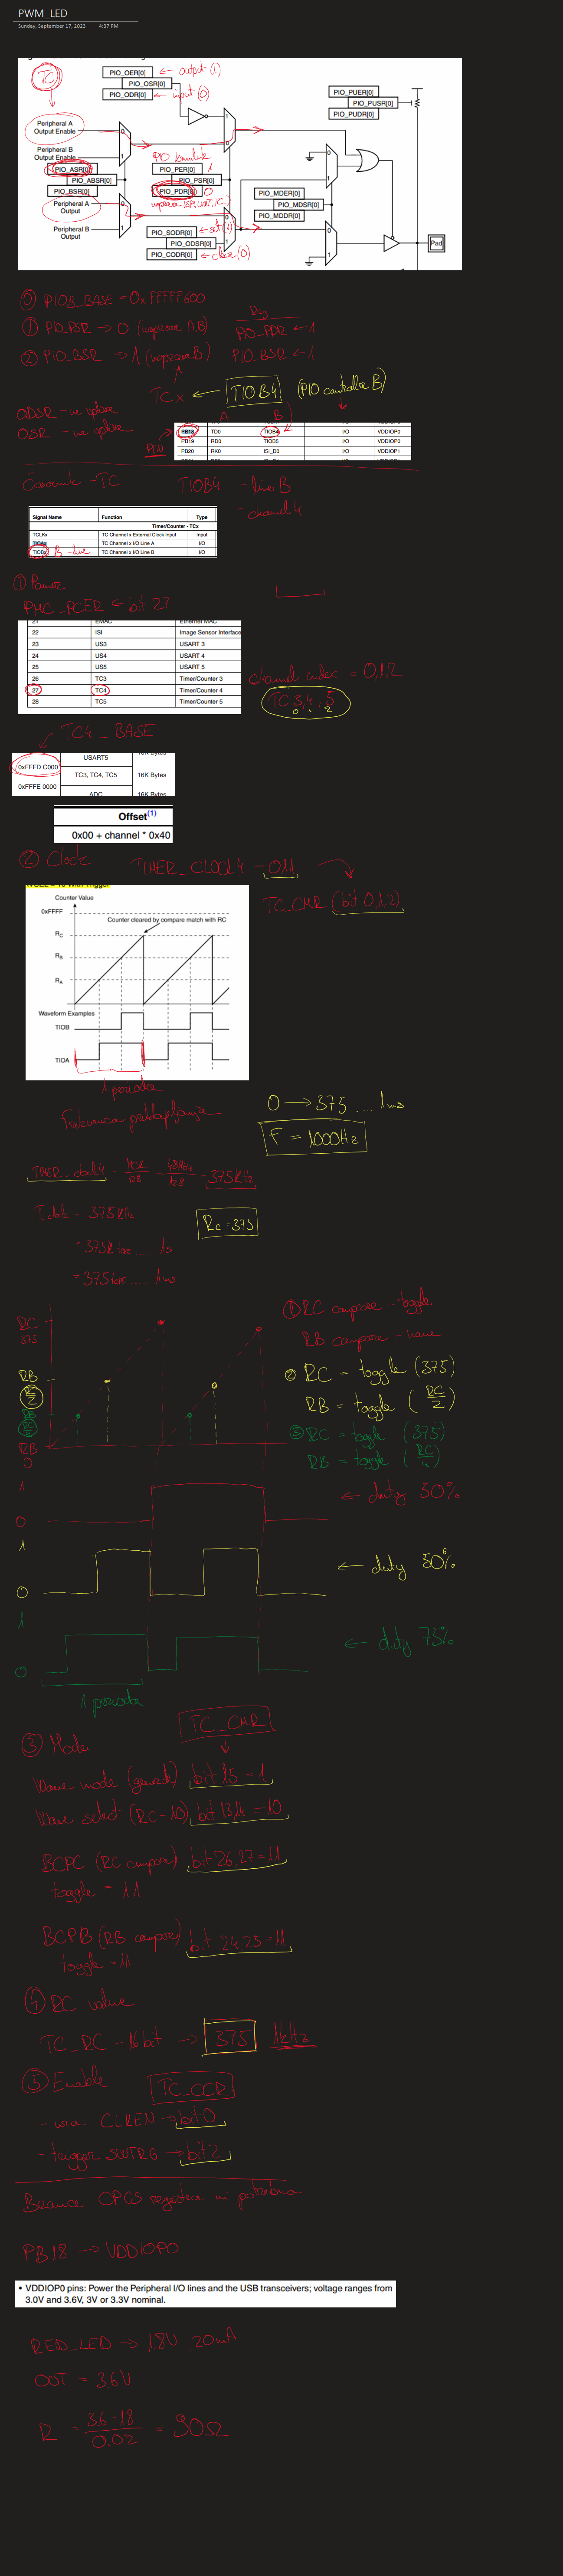 PWM_LED
Sunday, September 17, 2023 4:37 PM
TC
PIO_OER[0] ← output (1)
PIO_OSR[0]
PIO_ODR[0] ← input (0)
PIO_PUER[0]
PIO_PUSR[0]
PIO_PUDR[0]
Peripheral A
Output Enable
0
1
0
1
Peripheral B
Output Enable
PIO_ASR[0]
PIO_ABSR[0]
PIO_BSR[0]
PIO
PIO_PER[0] 1
PIO_PSR[0]
PIO_PDR[0] 0
PIO_MDER[0]
PIO_MDSR[0]
PIO_MDDR[0]
0
1
Peripheral A
Output
0
1
0
1
0
1
Peripheral B
Output
PIO_SODR[0] ← set (1)
PIO_ODSR[0]
PIO_CODR[0] ← clear (0)
Pad
⓪ PIOB_BASE = 0xFFFFF600
① PIO_PSR → 0 (naprava A,B)
Reg
PIO_PDR ← 1
② PIO_BSR → 1 (naprava B) PIO_BSR ← 1
TCx ← TIOB4 (PIO controller B)
ODSR - ne vpliva
OSR - ne vpliva
A B
PIN
PB18 TD0 TIOB4 I/O VDDIOP0
PB19 RD0 TIOB5 I/O VDDIOP0
PB20 RK0 ISI_D0 I/O VDDIOP1
Časovnik - TC TIOB4 - line B
- channel 4
Signal Name Function Type
Timer/Counter - TCx
TCLKx TC Channel x External Clock Input Input
TIOAx TC Channel x I/O Line A I/O
TIOBx TC Channel x I/O Line B I/O
B - line
① Power
PMC_PCER ← bit 27
21 EMAC Ethernet MAC
22 ISI Image Sensor Interface
23 US3 USART 3
24 US4 USART 4
25 US5 USART 5
26 TC3 Timer/Counter 3
27 TC4 Timer/Counter 4
28 TC5 Timer/Counter 5
channel index = 0,1,2
TC 3,4,5
0 1 2
TC4_BASE
USART5
0xFFFD C000
TC3, TC4, TC5 16K Bytes
0xFFFE 0000
ADC 16K Bytes
Offset(1)
0x00 + channel * 0x40
② Clock TIMER_CLOCK4 - 011
TC_CMR (bit 0,1,2)
Counter Value
0xFFFF
Counter cleared by compare match with RC
RC
RB
RA
Waveform Examples
TIOB
TIOA
1 perioda
0 → 375 .... 1ms
F = 1000Hz
Frekvenca preklapljanja
TIMER_clock4 = MCK/128 = 48MHz/128 = 375kHz
= 375kHz
Rc = 375
.... 1s
.... 1ms
RC
375
RB
RC/2
RB
RB
0
① RC compare - toggle
RB compare - none
② RC = toggle (375)
RB = toggle (RC/2)
③ RC = toggle (375)
RB = toggle (RC/4)
1
0
← duty 50%
1
0
← duty 50%
1
0
← duty 75%
1 perioda
TC_CMR
③ Mode
Wave mode (generate) bit 15 = 1
Wave select (RC - 10) bit 13,14 = 10
BCPC (RC compare) bit 26,27 = 11
toggle = 11
BCPB (RB compare) bit 24,25 = 11
toggle = 11
④ RC value
TC_RC - 16bit → 375 1kHz
⑤ Enable TC_CCR
- ura CLKEN → bit 0
- trigger SWTRG → bit 2
Branje CPCS registra ni potrebno
PB18 → VDDIOP0
• VDDIOP0 pins: Power the Peripheral I/O lines and the USB transceivers; voltage ranges from
3.0V and 3.6V, 3V or 3.3V nominal.
RED_LED → 1.8V 20mA
OUT = 3.6V
R = 3.6-1.8/0.02 = 90Ω